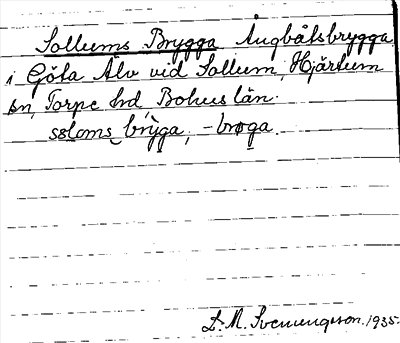 Sollums Brygga Ångbåtsbrygga
i Göta Älv vid Sollum, Hjärtum
sn, Torpe hd, Bohus län.
soloms bryga, -brøga.
L. M. Svenungsson. 1935.